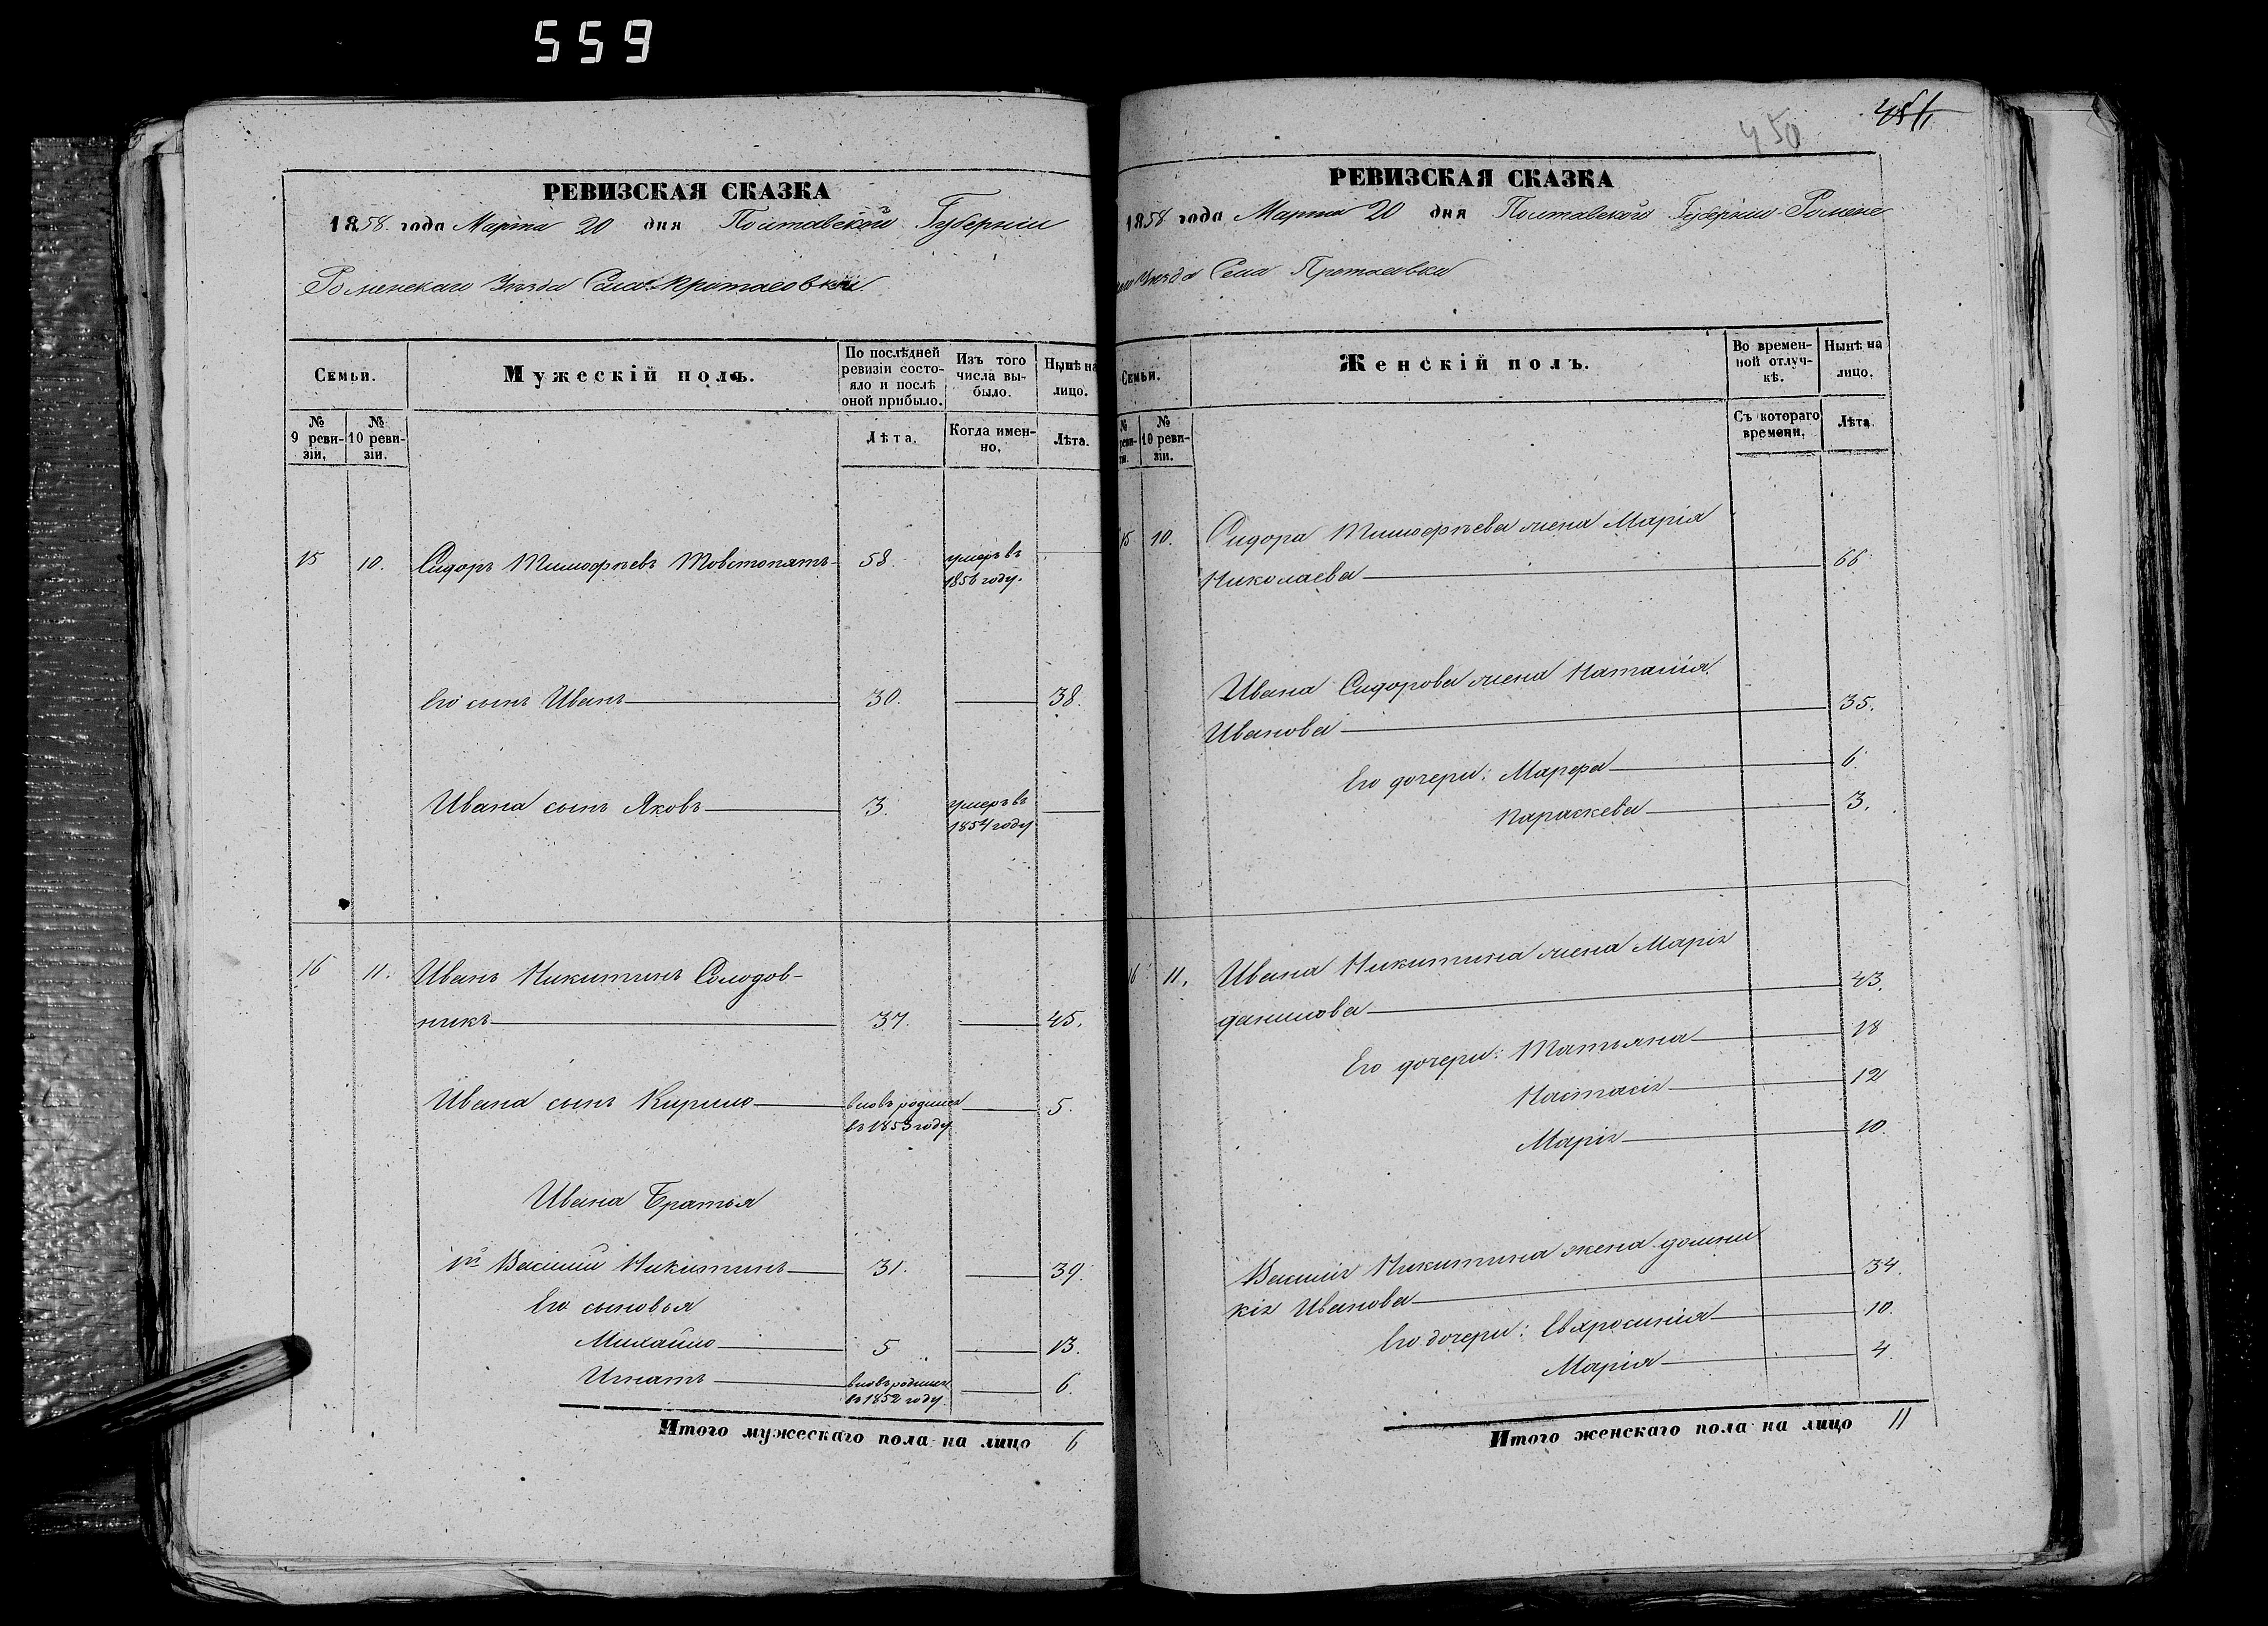 559
РЕВИЗСКАЯ СКАЗКА
1858. года Марта 20 дня Полтавской Губерніи
Роменскаго Уезда Села Протасовки
Семьи.
Мужескій полъ.
По послѣдней ревизіи состояло и послѣ оной прибыло.
Изъ того числа выбыло.
Нынѣ на лицо.
№ 9 ревизіи.
№ 10 ревизіи.
Лѣта.
Когда именно.
Лѣта.
15 10. Сидоръ Тимофѣевъ Товстопятъ 58. умеръ въ 1856 году.
Его сынъ Иванъ 30. 38.
Ивана сынъ Яковъ 3. умеръ въ 1854 году
16 11. Иванъ Никитинъ Солодов-
никъ 37. 45.
Ивана сынъ Кирило вновь родился въ 1853 году 5.
Ивана Братья
1й Василий Никитинъ 31. 39.
Его сыновья
Михайло 5 13.
Игнатъ вновь родился въ 1852 году. 6.
Итого мужескаго пола на лицо 6
450
РЕВИЗСКАЯ СКАЗКА
1858 года Марта 20 дня Полтавской Губерніи Роменс
каго Уезда Села Протасовки
Семьи.
Женскій полъ.
Во временной отлучкѣ.
Нынѣ на лицо.
№ ревизіи.
№ 10 ревизіи.
Съ котораго времени.
Лѣта.
15 10. Сидора Тимофѣева жена Марія
Николаева 66
Ивана Сидорова жена Наталія
Иванова 35.
Его дочери: Марфа 6.
Параскева 3.
16 11. Ивана Никитина жена Марія
Данилова 43.
Его дочери: Татьяна 18
Настасія 12
Марія 10.
Василія Никитина жена Домни
кія Иванова 34.
Его дочери: Евхросинія 10.
Марія 4.
Итого женскаго пола на лицо 11